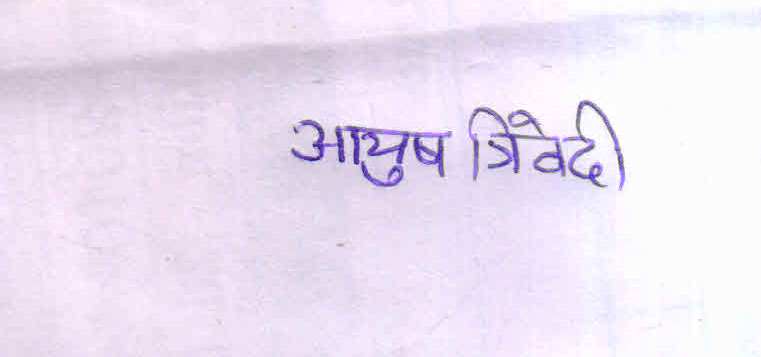 आयुष त्रिवेदी